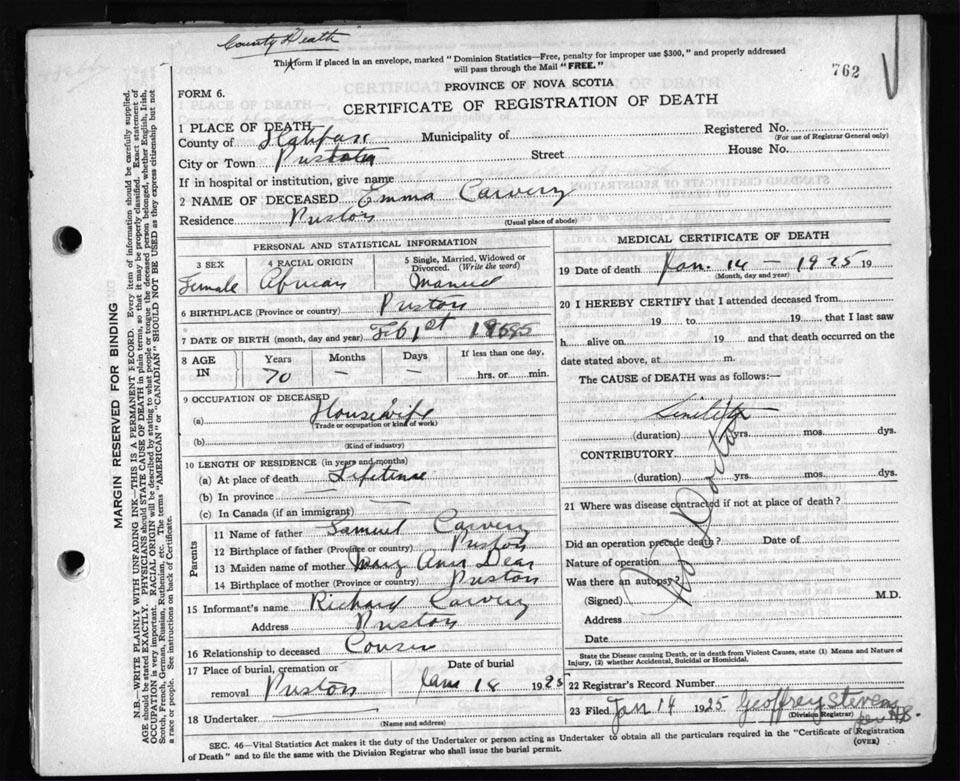 County Death
This form if placed in an envelope, marked "Dominion Statistics—Free, penalty for improper use $300," and properly addressed
will pass through the Mail "FREE."
762
FORM 6.
PROVINCE OF NOVA SCOTIA
CERTIFICATE OF REGISTRATION OF DEATH
1 PLACE OF DEATH—
County of Halifax Municipality of Registered No.
(For use of Registrar General only)
City or Town Preston Street House No.
If in hospital or institution, give name
2 NAME OF DECEASED Emma Carvery
Residence Preston
(Usual place of abode)
PERSONAL AND STATISTICAL INFORMATION
3 SEX 4 RACIAL ORIGIN 5 Single, Married, Widowed or Divorced. (Write the word)
Female African Married
6 BIRTHPLACE (Province or country) Preston
7 DATE OF BIRTH (month, day and year) Feb 1st
8 AGE IN Years Months Days If less than one day,
70 — — hrs. or min.
9 OCCUPATION OF DECEASED
(a) Housewife
(Trade or occupation or kind of work)
(b)
(Kind of industry)
10 LENGTH OF RESIDENCE (in years and months)
(a) At place of death Lifetime
(b) In province —
(c) In Canada (if an immigrant) —
Parents
11 Name of father Samuel Carvery
12 Birthplace of father (Province or country) Preston
13 Maiden name of mother Mary Ann Dear
14 Birthplace of mother (Province or country) Preston
15 Informant's name Richard Carvery
Address Preston
16 Relationship to deceased Cousin
17 Place of burial, cremation or removal Preston Date of burial Jan 18 1925
18 Undertaker
(Name and address)
MEDICAL CERTIFICATE OF DEATH
19 Date of death Jan. 14 — 1925 19
(Month, day and year)
20 I HEREBY CERTIFY that I attended deceased from
19 to 19 that I last saw
h alive on 19 and that death occurred on the
date stated above, at m.
The CAUSE OF DEATH was as follows:—
Senility
(duration) yrs. mos. dys.
CONTRIBUTORY
(duration) yrs. mos. dys.
No Doctor
21 Where was disease contracted if not at place of death?
Did an operation precede death? Date of
Nature of operation
Was there an autopsy
(Signed) M.D.
Address
Date
State the Disease causing Death, or in death from Violent Causes, state (1) Means and Nature of
Injury, (2) whether Accidental, Suicidal or Homicidal.
22 Registrar's Record Number
23 Filed Jan 14 1925 Geoffrey Stevens
(Division Registrar)
SEC. 46—Vital Statistics Act makes it the duty of the Undertaker or person acting as Undertaker to obtain all the particulars required in the "Certificate of Registration
of Death" and to file the same with the Division Registrar who shall issue the burial permit.
(OVER)
MARGIN RESERVED FOR BINDING
N.B.—WRITE PLAINLY WITH UNFADING INK—THIS IS A PERMANENT RECORD. Every item of information should be carefully supplied.
AGE should be stated EXACTLY. PHYSICIANS should STATE CAUSE OF DEATH in plain terms, so that it may be properly classified. Exact statement of
OCCUPATION is very important. RACIAL ORIGIN will be described by stating to what people or tongue the deceased person belonged, whether English, Irish,
Scotch, French, German, Russian, Ruthenian, etc. The terms "AMERICAN" or "CANADIAN" SHOULD NOT BE USED as they express citizenship but not
a race or people. See instructions on back of Certificate.